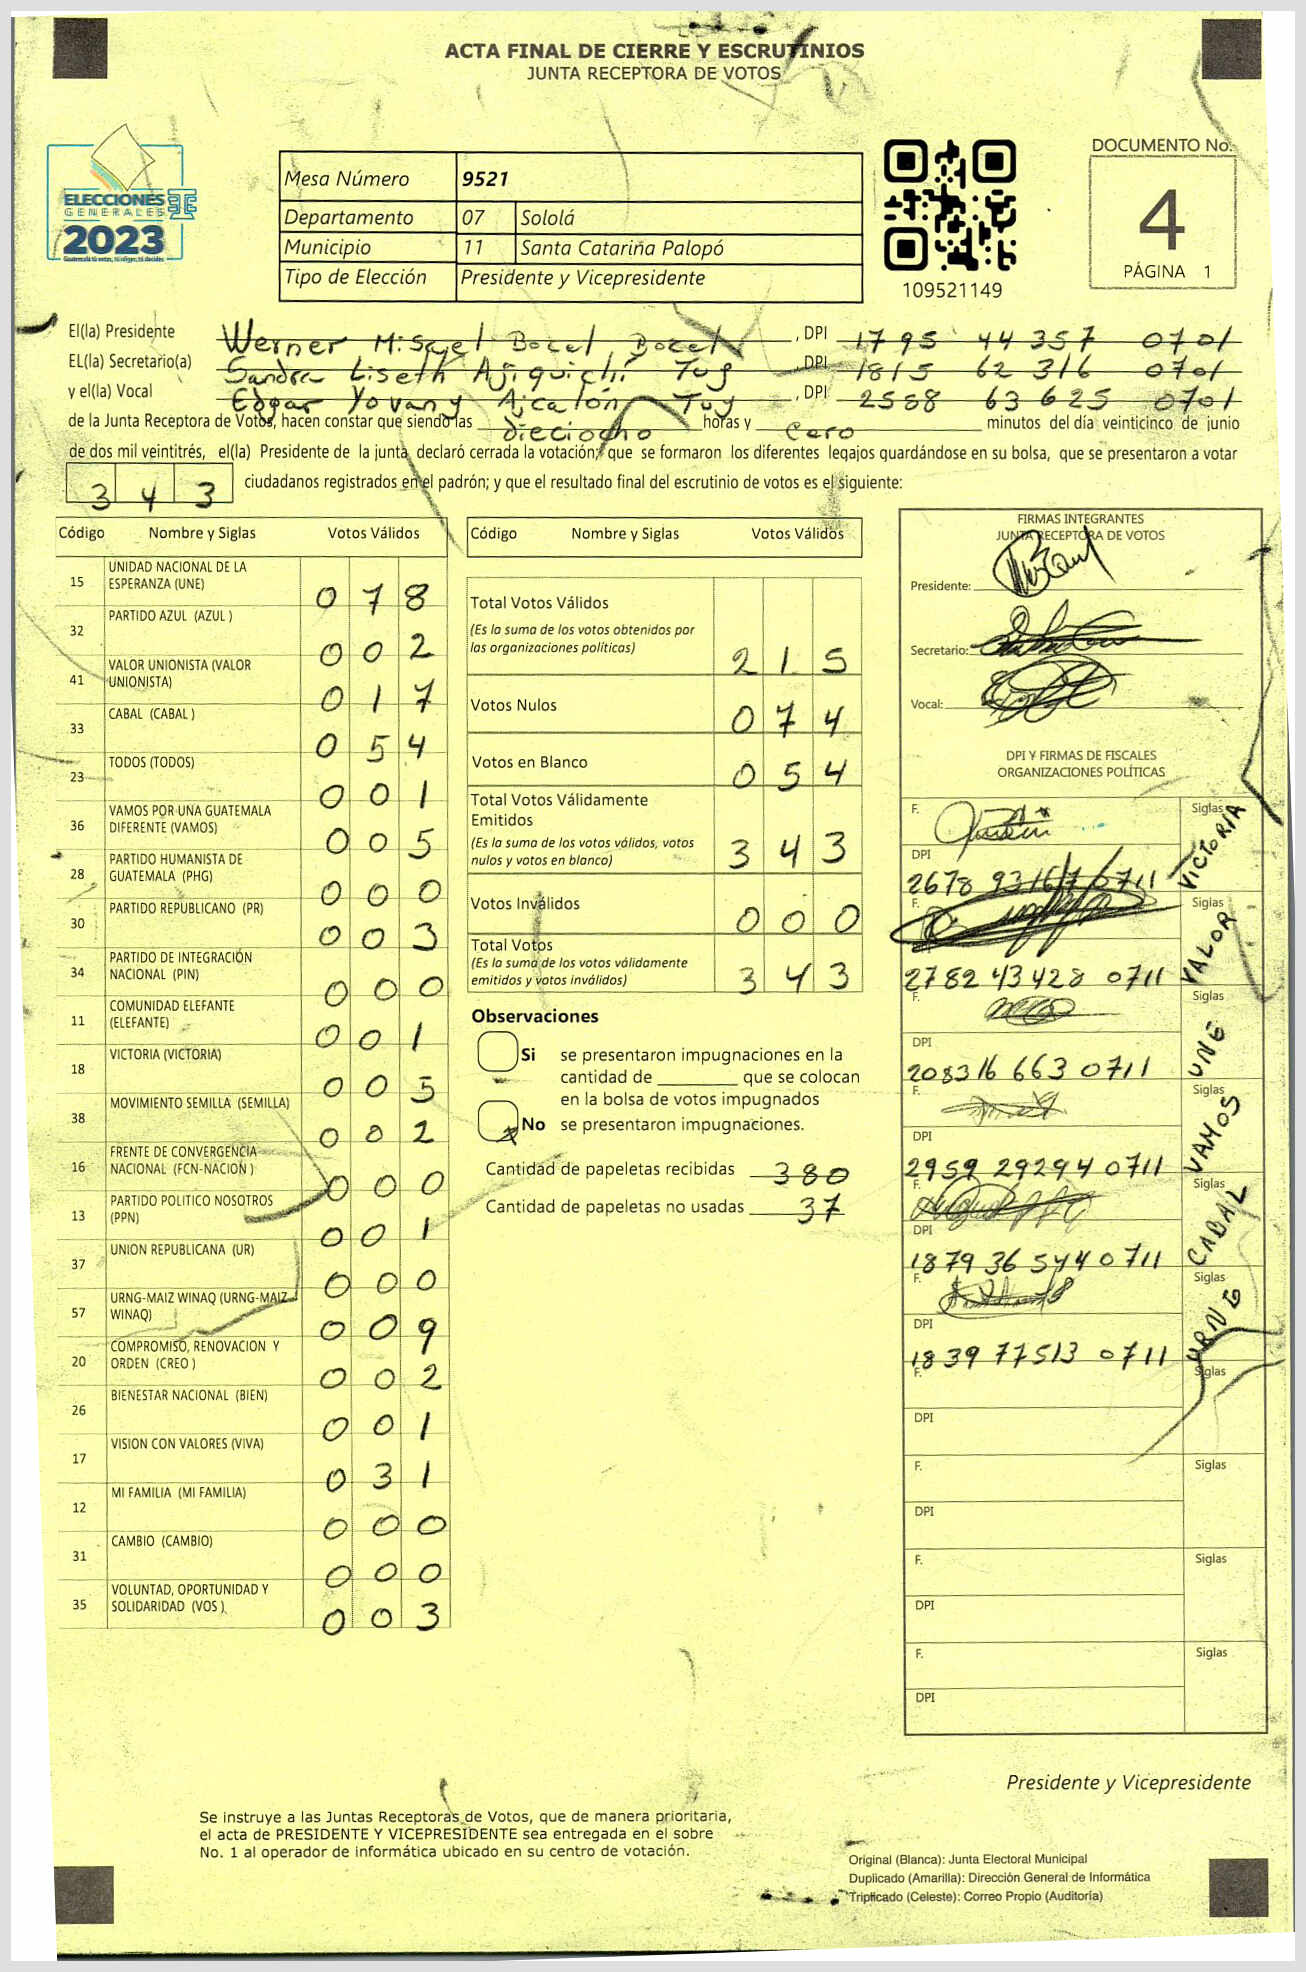 ACTA FINAL DE CIERRE Y ESCRUTINIOS
JUNTA RECEPTORA DE VOTOS
ELECCIONES
GENERALES
2023
Guatemala tú votas, tú eliges, tú decides
Mesa Número 9521
Departamento 07 Sololá
Municipio 11 Santa Catarina Palopó
Tipo de Elección Presidente y Vicepresidente
109521149
DOCUMENTO No.
4
PÁGINA 1
El(la) Presidente Werner Misael Bocel Bocel, DPI 1795 44357 0701
EL(la) Secretario(a) Sandra Liseth Ajiquichí Tuy, DPI 1815 62316 0701
y el(la) Vocal Edgar Yovany Ajcalón Tuy, DPI 2588 63625 0701
de la Junta Receptora de Votos, hacen constar que siendo las dieciocho horas y cero minutos del día veinticinco de junio
de dos mil veintitrés, el(la) Presidente de la junta declaró cerrada la votación; que se formaron los diferentes legajos guardándose en su bolsa, que se presentaron a votar
343 ciudadanos registrados en el padrón; y que el resultado final del escrutinio de votos es el siguiente:
Código Nombre y Siglas Votos Válidos
15 UNIDAD NACIONAL DE LA ESPERANZA (UNE) 078
32 PARTIDO AZUL (AZUL ) 002
41 VALOR UNIONISTA (VALOR UNIONISTA) 017
33 CABAL (CABAL ) 054
23 TODOS (TODOS) 001
36 VAMOS POR UNA GUATEMALA DIFERENTE (VAMOS) 005
28 PARTIDO HUMANISTA DE GUATEMALA (PHG) 000
30 PARTIDO REPUBLICANO (PR) 003
34 PARTIDO DE INTEGRACIÓN NACIONAL (PIN) 000
11 COMUNIDAD ELEFANTE (ELEFANTE) 001
18 VICTORIA (VICTORIA) 005
38 MOVIMIENTO SEMILLA (SEMILLA) 002
16 FRENTE DE CONVERGENCIA NACIONAL (FCN-NACION ) 000
13 PARTIDO POLITICO NOSOTROS (PPN) 001
37 UNION REPUBLICANA (UR) 000
57 URNG-MAIZ WINAQ (URNG-MAIZ WINAQ) 009
20 COMPROMISO, RENOVACION Y ORDEN (CREO ) 002
26 BIENESTAR NACIONAL (BIEN) 001
17 VISION CON VALORES (VIVA) 031
12 MI FAMILIA (MI FAMILIA) 000
31 CAMBIO (CAMBIO) 000
35 VOLUNTAD, OPORTUNIDAD Y SOLIDARIDAD (VOS ) 003
Código Nombre y Siglas Votos Válidos
Total Votos Válidos
(Es la suma de los votos obtenidos por
las organizaciones políticas) 215
Votos Nulos 074
Votos en Blanco 054
Total Votos Válidamente
Emitidos
(Es la suma de los votos válidos, votos
nulos y votos en blanco) 343
Votos Inválidos 000
Total Votos
(Es la suma de los votos válidamente
emitidos y votos inválidos) 343
Observaciones
Si se presentaron impugnaciones en la
cantidad de ________ que se colocan
en la bolsa de votos impugnados
x No se presentaron impugnaciones.
Cantidad de papeletas recibidas 380
Cantidad de papeletas no usadas 37
FIRMAS INTEGRANTES
JUNTA RECEPTORA DE VOTOS
Presidente:
Secretario:
Vocal:
DPI Y FIRMAS DE FISCALES
ORGANIZACIONES POLÍTICAS
F. Siglas VICTORIA
DPI 2678 93167 0711
F. Siglas VALOR
DPI 2782 43428 0711
F. Siglas UNE
DPI 208316 663 0711
F. Siglas VAMOS
DPI 2959 29294 0711
F. Siglas CABAL
DPI 1879 36 544 0711
F. Siglas URNG
DPI 1839 77513 0711
F. Siglas
DPI
F. Siglas
DPI
F. Siglas
DPI
F. Siglas
DPI
Presidente y Vicepresidente
Se instruye a las Juntas Receptoras de Votos, que de manera prioritaria,
el acta de PRESIDENTE Y VICEPRESIDENTE sea entregada en el sobre
No. 1 al operador de informática ubicado en su centro de votación.
Original (Blanca): Junta Electoral Municipal
Duplicado (Amarilla): Dirección General de Informática
Triplicado (Celeste): Correo Propio (Auditoría)